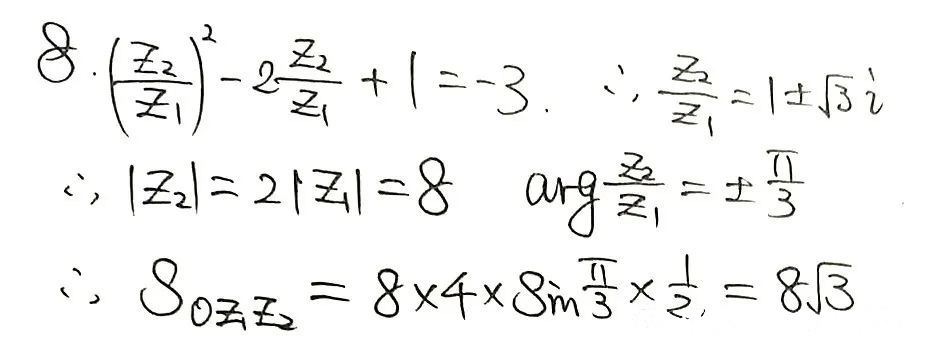 8. (Z₂/Z₁)² - 2 Z₂/Z₁ + 1 = -3. ∴ Z₂/Z₁ = 1 ± √3 i
∴ |Z₂| = 2|Z₁| = 8 arg Z₂/Z₁ = ± π/3
∴ S_{OZ₁Z₂} = 8 × 4 × Sin π/3 × 1/2. = 8√3